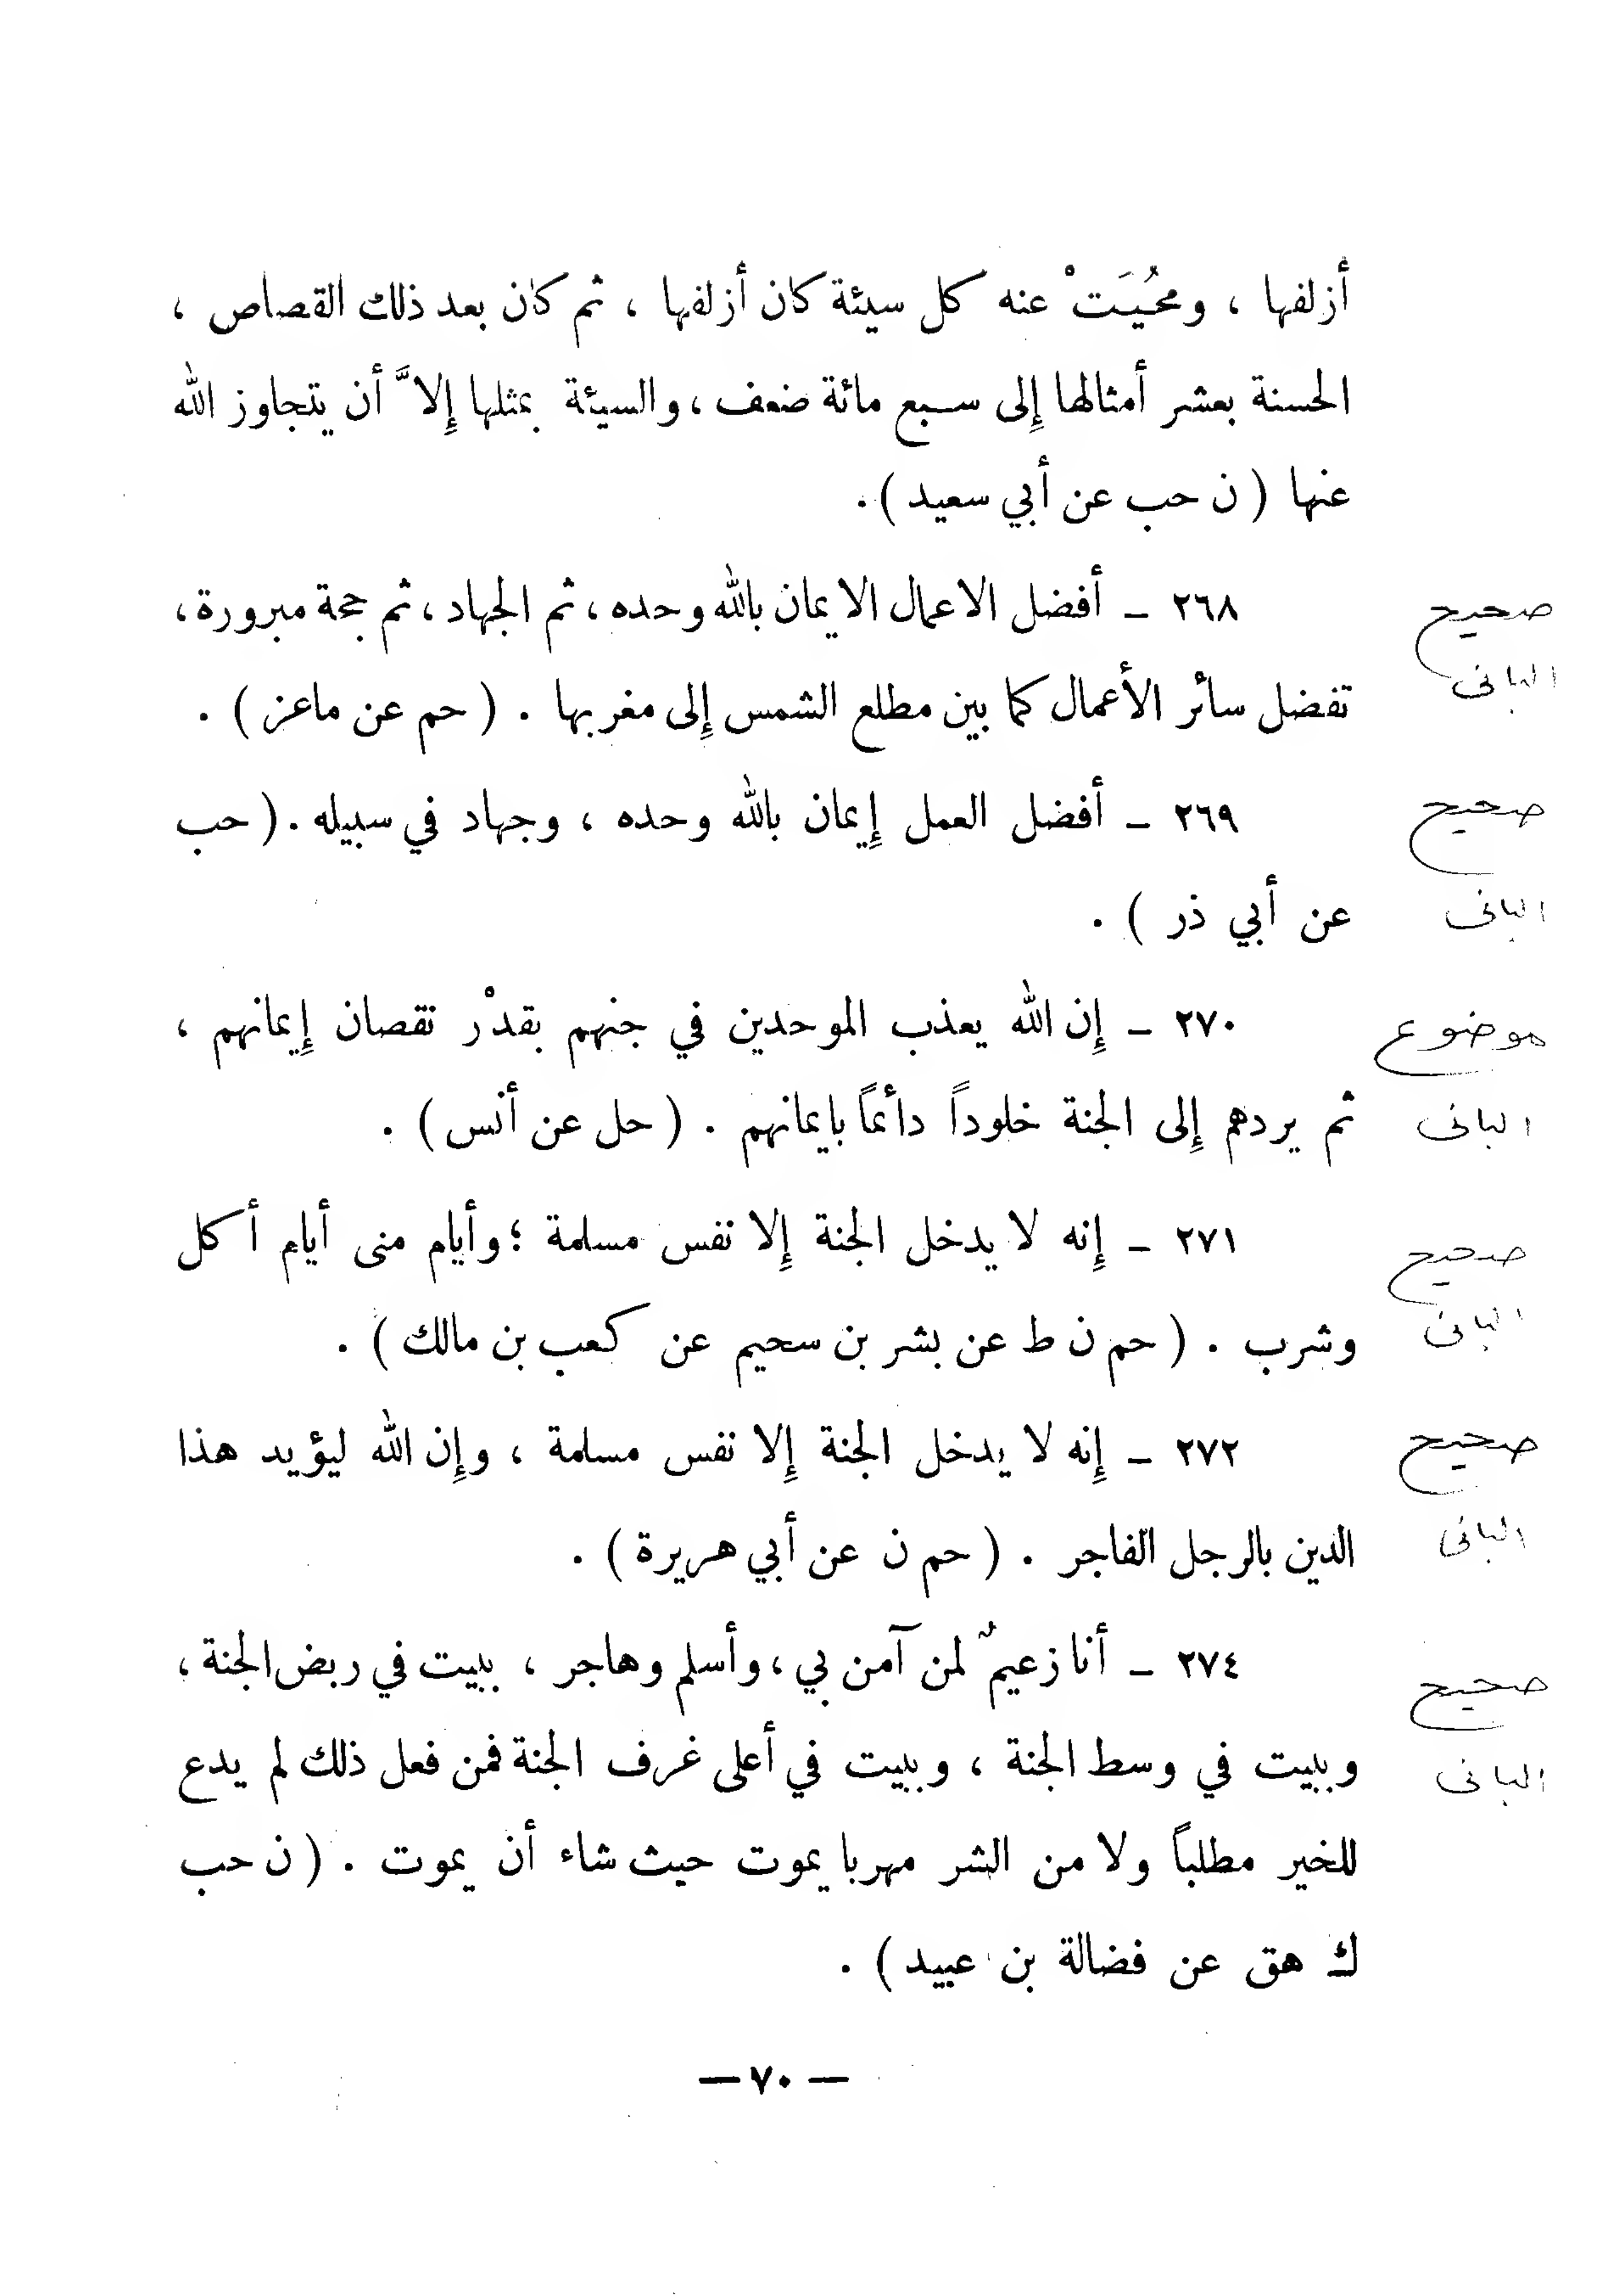 أزلفها ، ومحُيَتْ عنه كل سيئة كان أزلفها ، ثم كان بعد ذلك القصاص ،
الحسنة بعشر أمثالها إِلى سبع مائة ضعف ، والسيئة بمثلها إِلاَّ أن يتجاوز الله
عنها ( ن حب عن أبي سعيد ) .
٢٦٨ – أفضل الاعمال الايمان بالله وحده ، ثم الجهاد ، ثم حجة مبرورة ،
صحيح
تفضل سائر الأعمال كما بين مطلع الشمس إِلى مغربها . ( حم عن ماعز ) .
البانى
٢٦٩ – أفضل العمل إِيمان بالله وحده ، وجهاد في سبيله . ( حب
صحيح
عن أبي ذر ) .
البانى
٢٧٠ – إِن الله يعذب الموحدين في جنهم بقدْر نقصان إِيمانهم ،
موضوع
ثم يردهم إِلى الجنة خلوداً دائماً بايمانهم . ( حل عن أنس ) .
البانى
٢٧١ – إِنه لا يدخل الجنة إِلا نفس مسلمة ؛ وأيام منى أيام أكل
صحيح
وشرب . ( حم ن ط عن بشر بن سحيم عن كعب بن مالك ) .
البانى
٢٧٢ – إِنه لا يدخل الجنة إِلا نفس مسلمة ، وإِن الله ليؤيد هذا
صحيح
الدين بالرجل الفاجر . ( حم ن عن أبي هريرة ) .
البانى
٢٧٤ – أنا زعيمٌ لمن آمن بي ، وأسلم وهاجر ، ببيت في ربض الجنة ،
صحيح
وببيت في وسط الجنة ، وببيت في أعلى غرف الجنة فمن فعل ذلك لم يدع
البانى
للخير مطلباً ولا من الشر مهربا يموت حيث شاء أن يموت . ( ن حب
ك هق عن فضالة بن عبيد ) .
— ٧٠ —